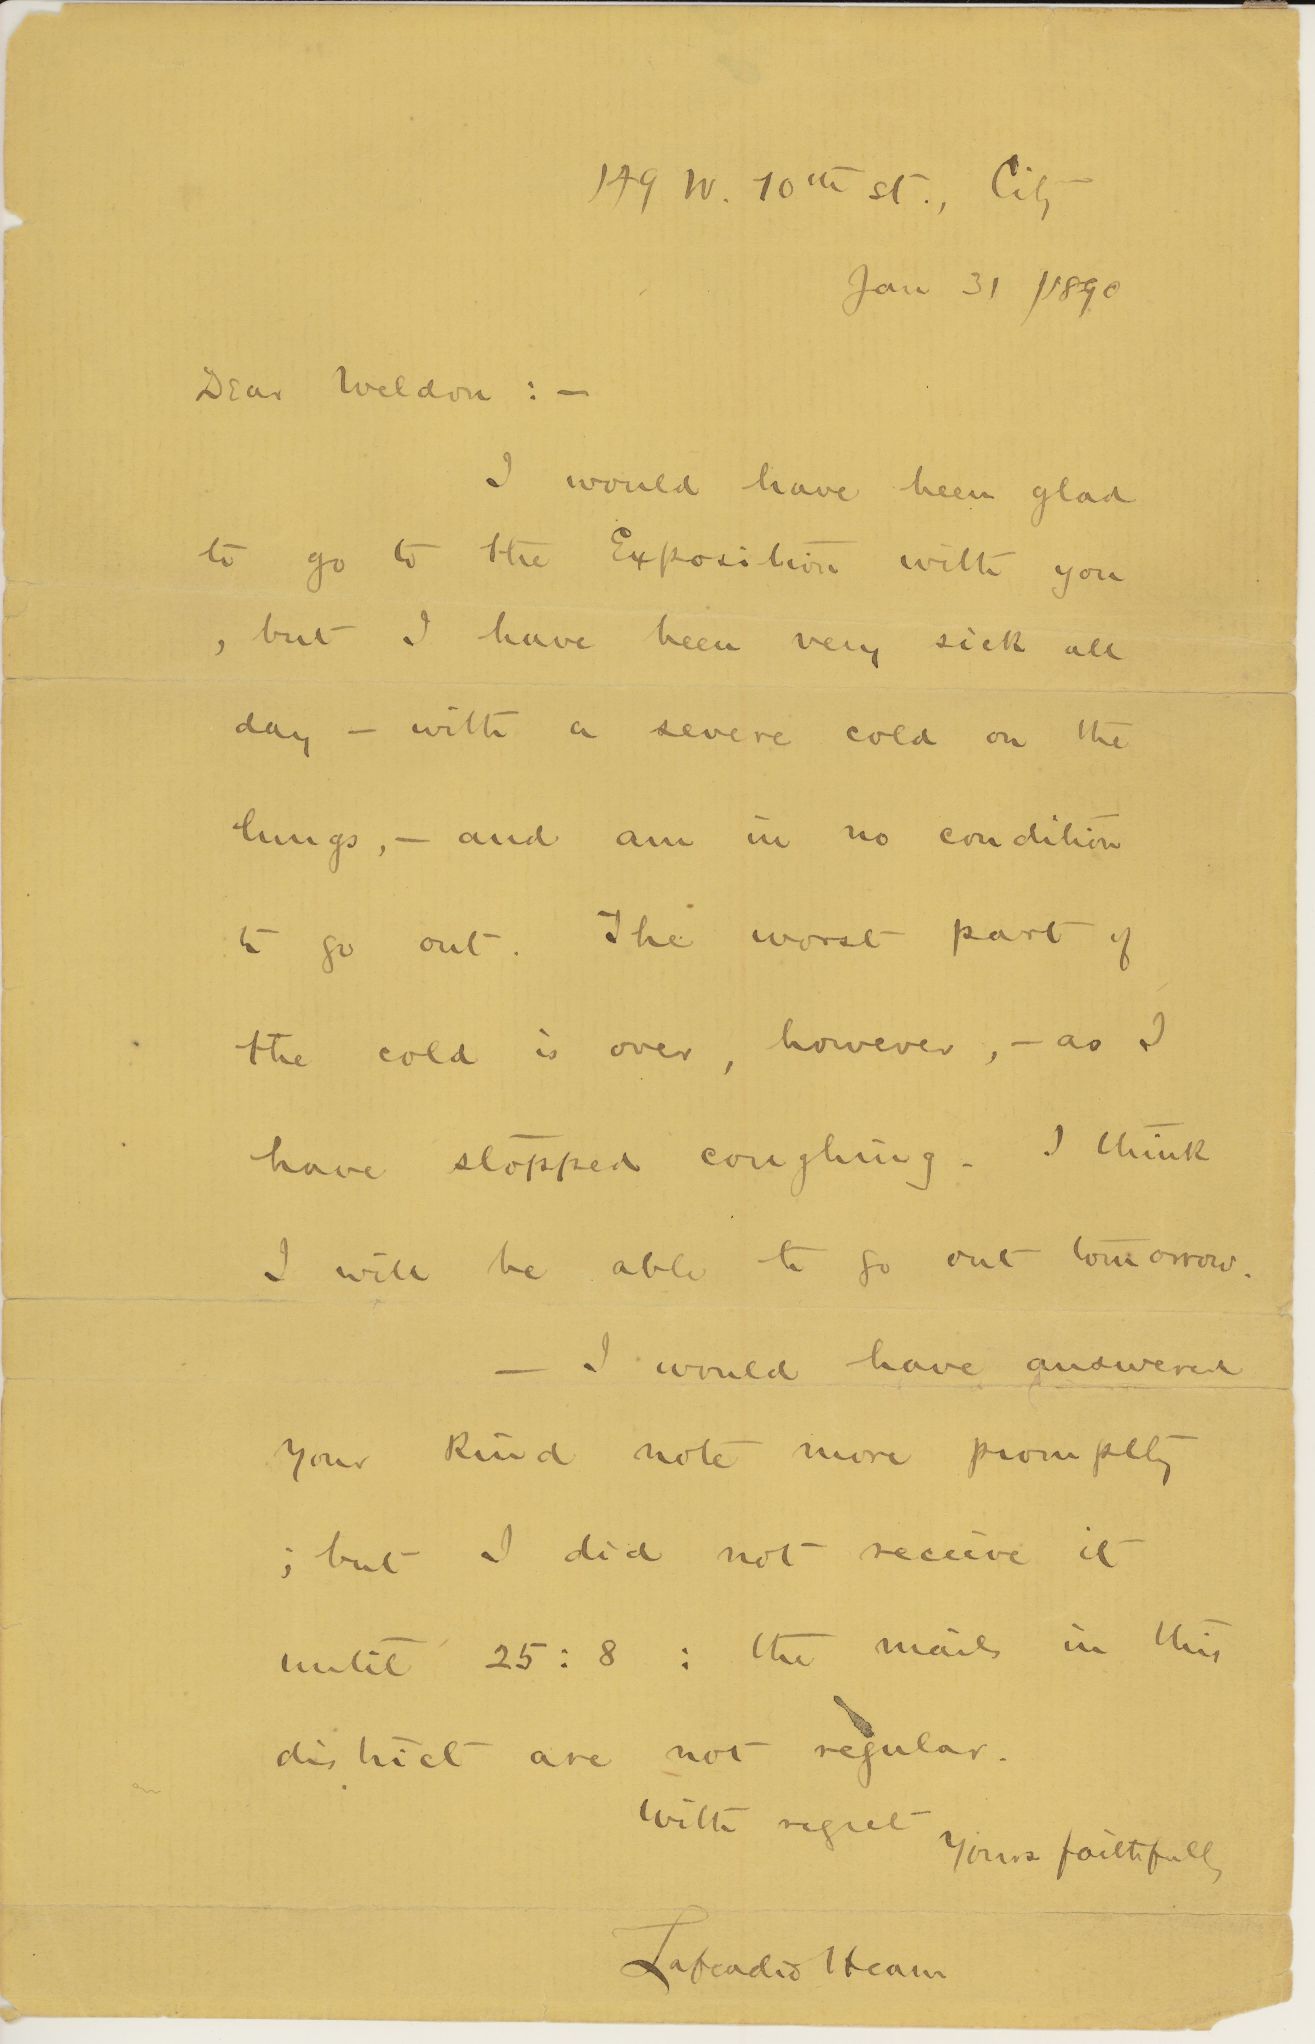 149 W. 10th st., City
Jan 31 /1890
Dear Weldon : —
I would have been glad
to go to the Exposition with you
, but I have been very sick all
day — with a severe cold on the
lungs, — and am in no condition
to go out. The worst part of
the cold is over, however, — as I
have stopped coughing. I think
I will be able to go out tomorrow.
— I would have answered
your kind note more promptly
; but I did not receive it
until 25 : 8 : the mails in this
district are not regular.
With regret
Yours faithfully
Lafcadio Hearn